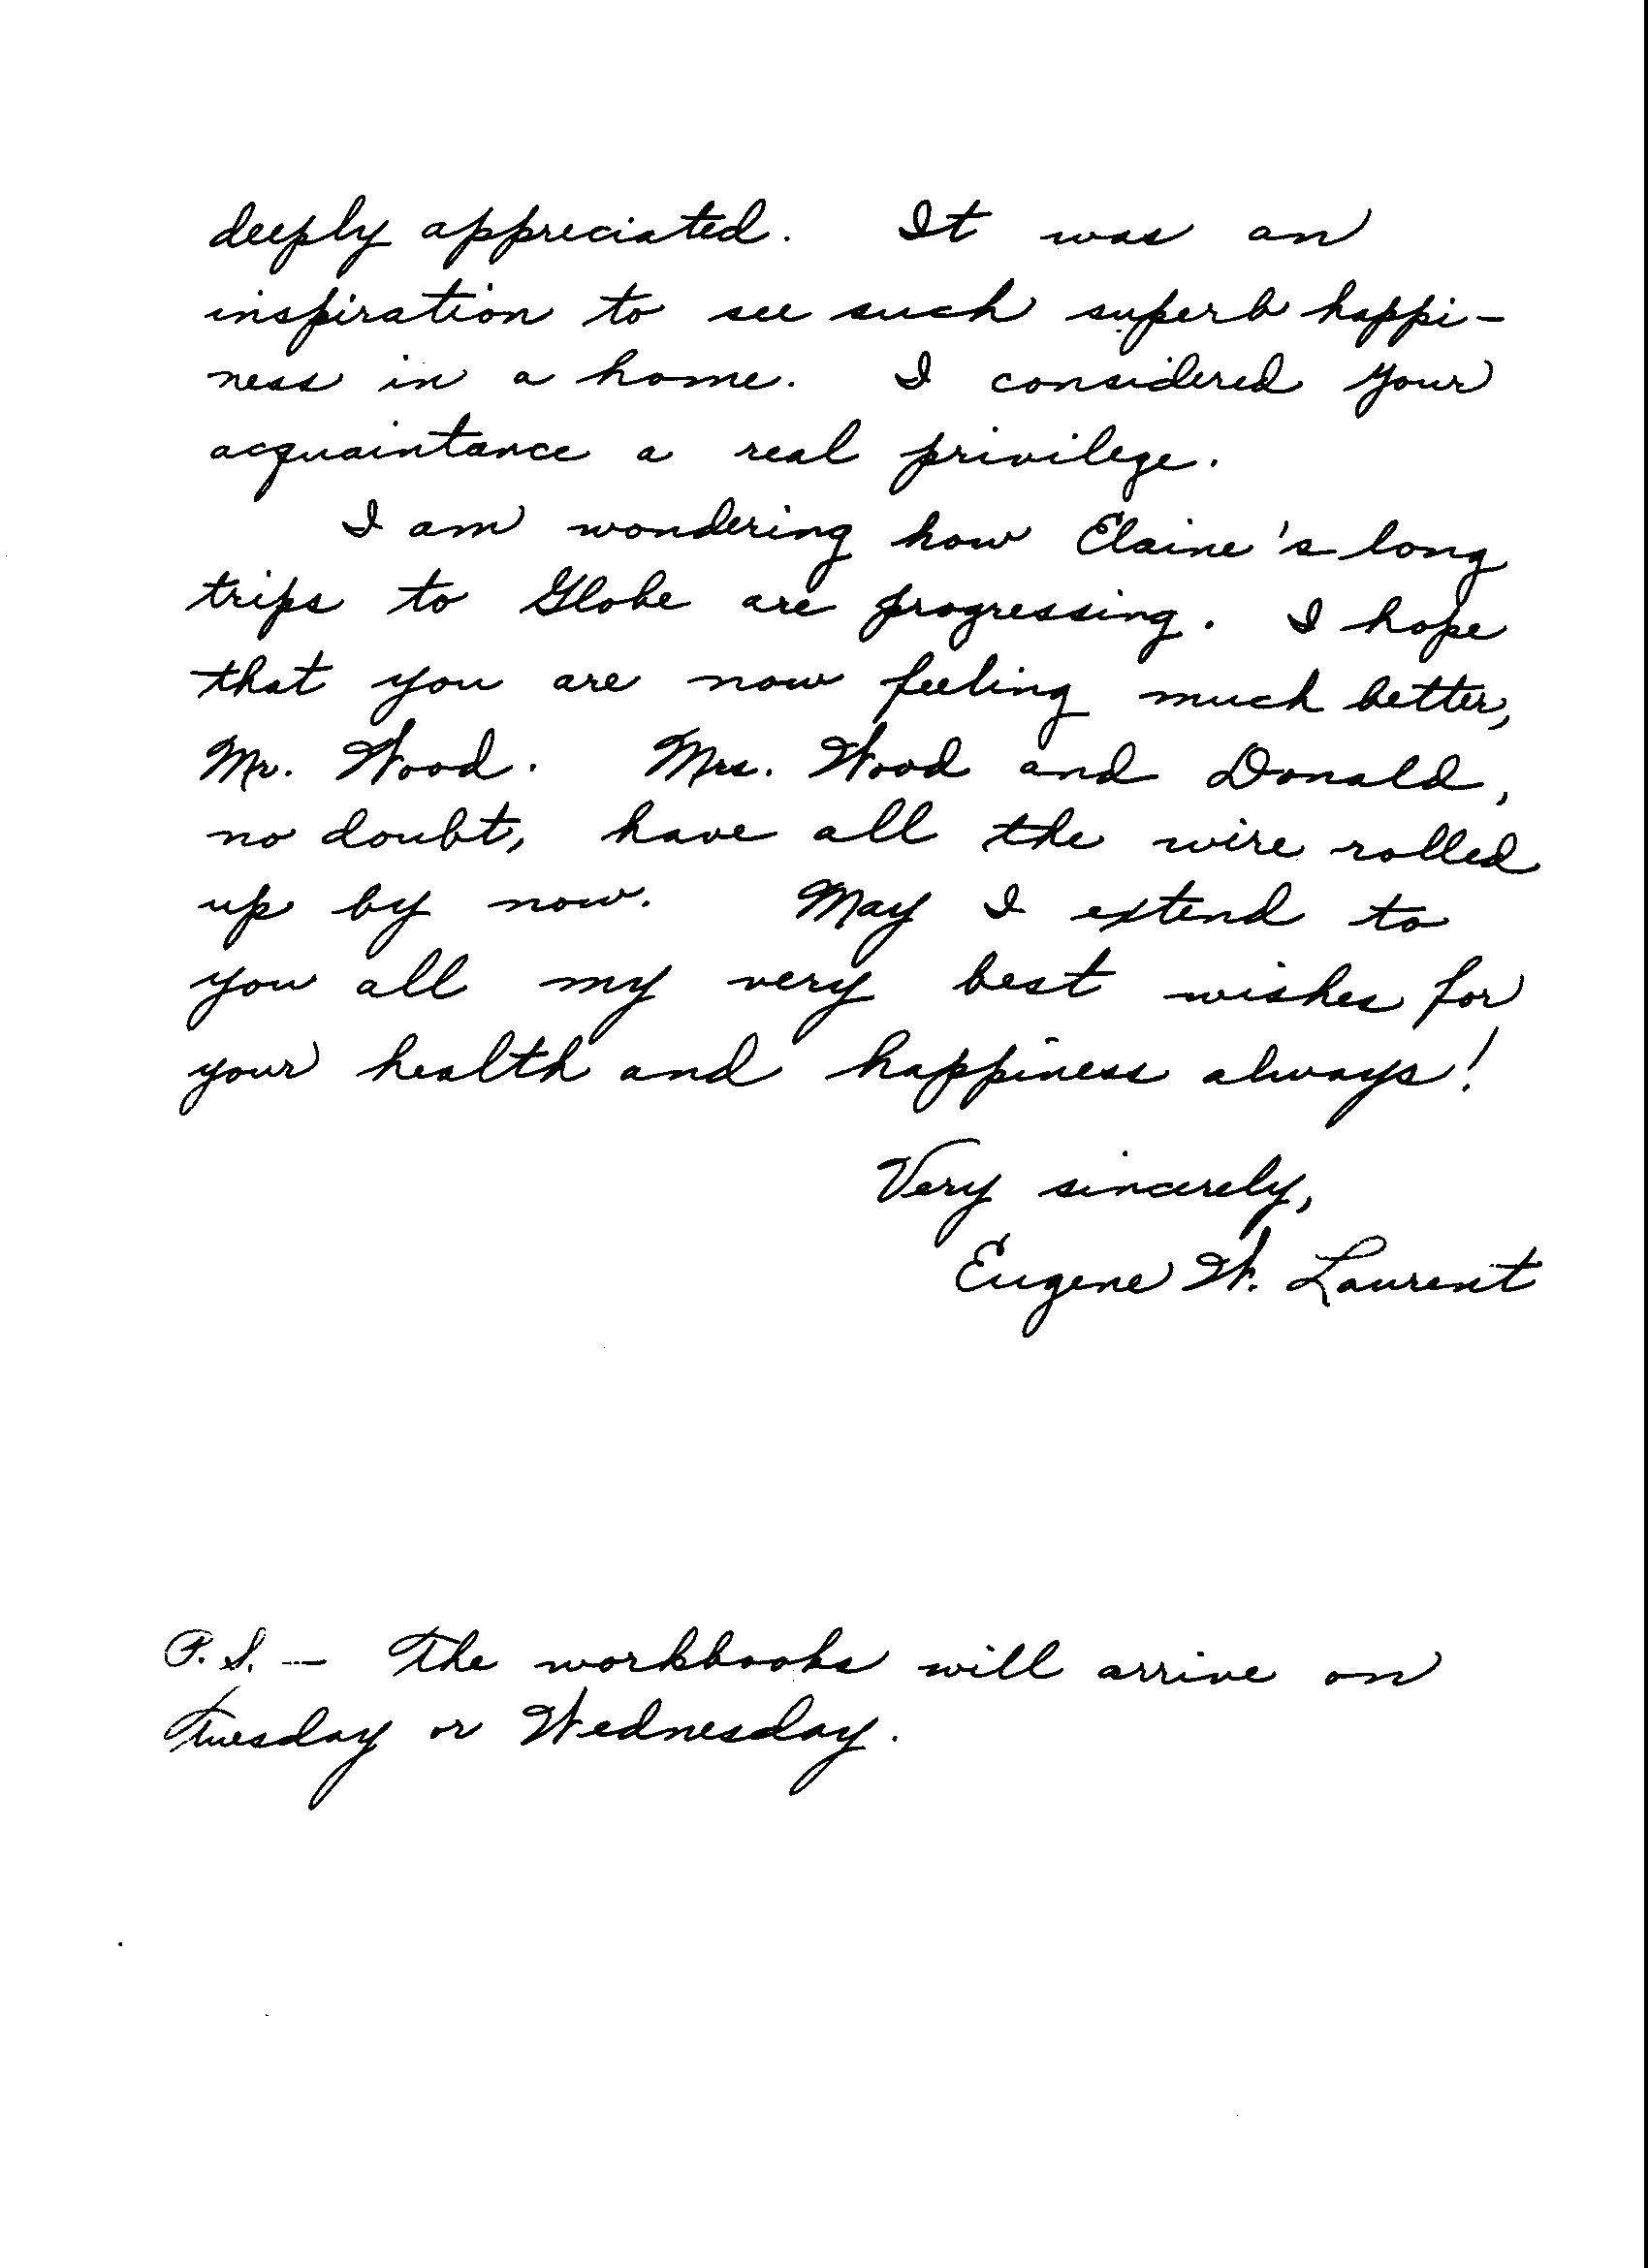 deeply appreciated. It was an
inspiration to see such superb happi-
ness in a home. I considered your
acquaintance a real privilege.
I am wondering how Elaine's long
trips to Globe are progressing. I hope
that you are now feeling much better,
Mr. Wood. Mrs. Wood and Donald,
no doubt, have all the wire rolled
up by now. May I extend to
you all my very best wishes for
your health and happiness always!
Very sincerely,
Eugene W. Laurent
P.S. — The workbooks will arrive on
Tuesday or Wednesday.